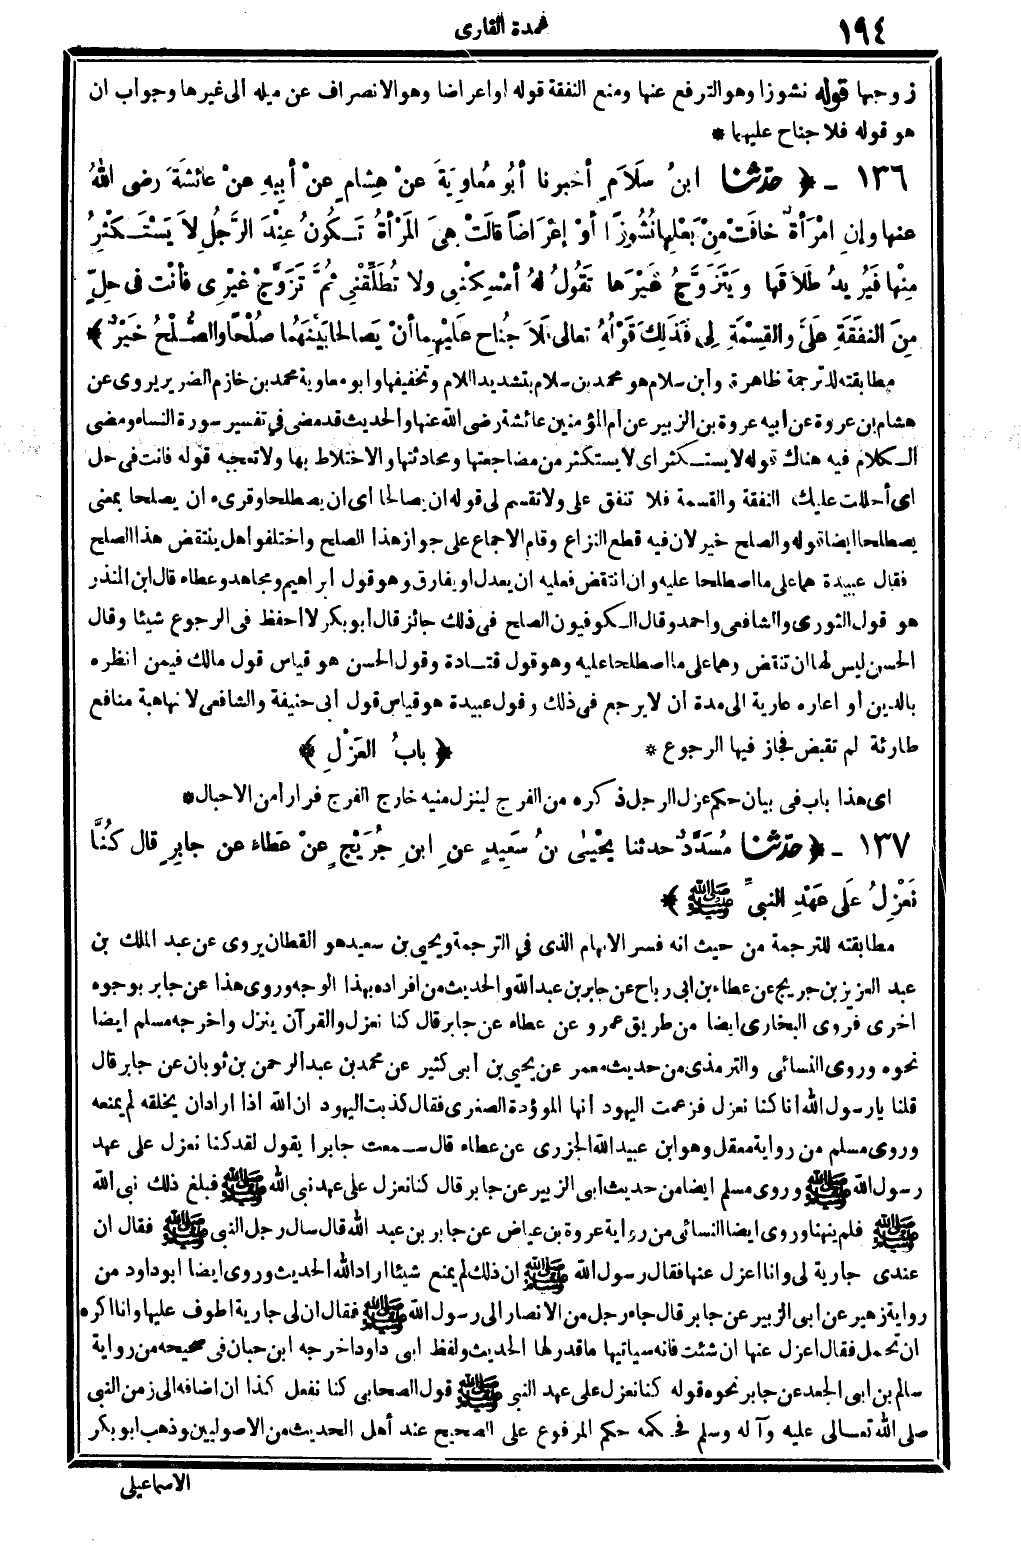 ١٩٤
عمدة القارى
زوجها قوله نشوزا وهو الترفع عنها ومنع النفقة قوله او اعراضا وهو الانصراف عن ميله الى غيرها وجواب ان
هو قوله فلا جناح عليهما *
١٣٦ - ﴿ حَدَّثَنَا ابنُ سَلَامٍ أخبرنا أبُو مُعاوِيَةَ عَنْ هِشامٍ عَنْ أبِيهِ عَنْ عائِشَةَ رضى اللهُ
عنها وإنِ امْرَأةٌ خافَتْ مِنْ بَعْلِها نُشُوزًا أوْ إعْرَاضاً قالَتْ هِيَ المَرْأةُ تَكُونُ عِنْدَ الرَّجُلِ لاَ يَسْتَكْثِرُ
مِنْها فَيُرِيدُ طَلاَقَها وَيَتَزَوَّجُ غَيْرَها تَقُولُ لهُ أمْسِكْنِي ولا تُطَلِّقْنِي ثُمَّ تَزَوَّجْ غَيْرِى فأنْتَ فى حِلٍّ
مِنَ النَّفَقَةِ عَلَيَّ والقِسْمَةِ لِى فَذَلِكَ قَوْلُهُ تعالى فَلاَ جُناحَ عَلَيْهِما أنْ يَصالحا بَيْنَهُما صُلْحًا والصُّلْحُ خَيْرٌ ﴾
مطابقته للترجمة ظاهرة وابن سلام هو محمد بن سلام بتشديد اللام وتخفيفها وابو معاوية محمد بن خازم الضرير يروى عن
هشام بن عروة عن أبيه عروة بن الزبير عن أم المؤمنين عائشة رضى الله عنها والحديث قد مضى في تفسير سورة النساء ومضى
الكلام فيه هناك قوله لا يستكثر اى لا يستكثر من مضاجعتها ومحادثتها والاختلاط بها ولا تعجبه قوله فانت فى حل
اى أحللت عليك النفقة والقسمة فلا تنفق على ولا تقسم لى قوله ان يصالحا اى ان يصطلحا وقرىء ان يصلحا بمعنى
يصطلحا ايضا قوله والصلح خير لان فيه قطع النزاع وقام الاجماع على جواز هذا الصلح واختلفوا هل ينتقض هذا الصلح
فقال عبيدة هما على ما اصطلحا عليه وان انتقض فعليه ان يعدل او يفارق وهو قول ابراهيم ومجاهد وعطاء قال ابن المنذر
هو قول الثورى والشافعى واحمد وقال الكوفيون الصلح فى ذلك جائز قال أبو بكر لا أحفظ فى الرجوع شيئا وقال
الحسن ليس لها ان تنقض وهما على ما اصطلحا عليه وهو قول قتادة وقول الحسن هو قياس قول مالك فيمن انظره
بالدين أو اعاره عارية الى مدة أن لا يرجع فى ذلك وقول عبيدة هو قياس قول أبى حنيفة والشافعى لانها هبة منافع
طارئة لم تقبض فجاز فيها الرجوع *
﴿ بابُ العَزْلِ ﴾
اى هذا باب فى بيان حكم عزل الرجل ذكره من الفرج لينزل منيه خارج الفرج فرارا من الاحبال *
١٣٧ - ﴿ حَدَّثَنَا مُسَدَّدٌ حدثنا يَحْيىٰ بنُ سَعِيدٍ عَنِ ابنِ جُرَيْجٍ عَنْ عَطاء عن جابِرٍ قال كُنَّا
نَعْزِلُ عَلَى عَهْدِ النبىِّ ﷺ ﴾
مطابقته للترجمة من حيث انه فسر الابهام الذى في الترجمة ويحيي بن سعيد هو القطان يروى عن عبد الملك بن
عبد العزيز بن جريج عن عطاء بن ابى رباح عن جابر بن عبد الله والحديث من افراده بهذا الوجه وروى هذا عن جابر بوجوه
اخرى فروى البخارى ايضا من طريق عمرو عن عطاء عن جابر قال كنا نعزل والقرآن ينزل واخرجه مسلم ايضا
نحوه وروى النسائى والترمذى من حديث معمر عن يحيي بن أبى كثير عن محمد بن عبد الرحمن بن ثوبان عن جابر قال
قلنا يا رسول الله انا كنا نعزل فزعمت اليهود انها الموؤدة الصغرى فقال كذبت اليهود ان الله اذا اراد ان يخلقه لم يمنعه
وروى مسلم من رواية معقل وهو ابن عبيد الله الجزرى عن عطاء قال سمعت جابرا يقول لقد كنا نعزل على عهد
رسول الله ﷺ وروى مسلم ايضا من حديث ابى الزبير عن جابر قال كنا نعزل على عهد نبى الله ﷺ فبلغ ذلك نبى الله
ﷺ فلم ينهنا وروى ايضا النسائى من رواية عروة بن عياض عن جابر بن عبد الله قال سال رجل النبى ﷺ فقال ان
عندى جارية لى وانا اعزل عنها فقال رسول الله ﷺ ان ذلك لم يمنع شيئا اراد الله الحديث وروى ايضا ابو داود من
رواية زهير عن ابى الزبير عن جابر قال جاء رجل من الانصار الى رسول الله ﷺ فقال ان لى جارية اطوف عليها وانا اكره
ان تحمل فقال اعزل عنها ان شئت فانه سياتيها ما قدر لها الحديث ولفظ ابى داود اخرجه ابن حبان فى صحيحه من رواية
سالم بن ابى الجعد عن جابر نحوه قوله كنا نعزل على عهد النبى ﷺ قول الصحابى كنا نفعل كذا ان اضافه الى زمن النبى
صلى الله تعالى عليه وآله وسلم فحكمه حكم المرفوع على الصحيح عند أهل الحديث من الاصوليين وذهب ابو بكر
الاسماعيلى